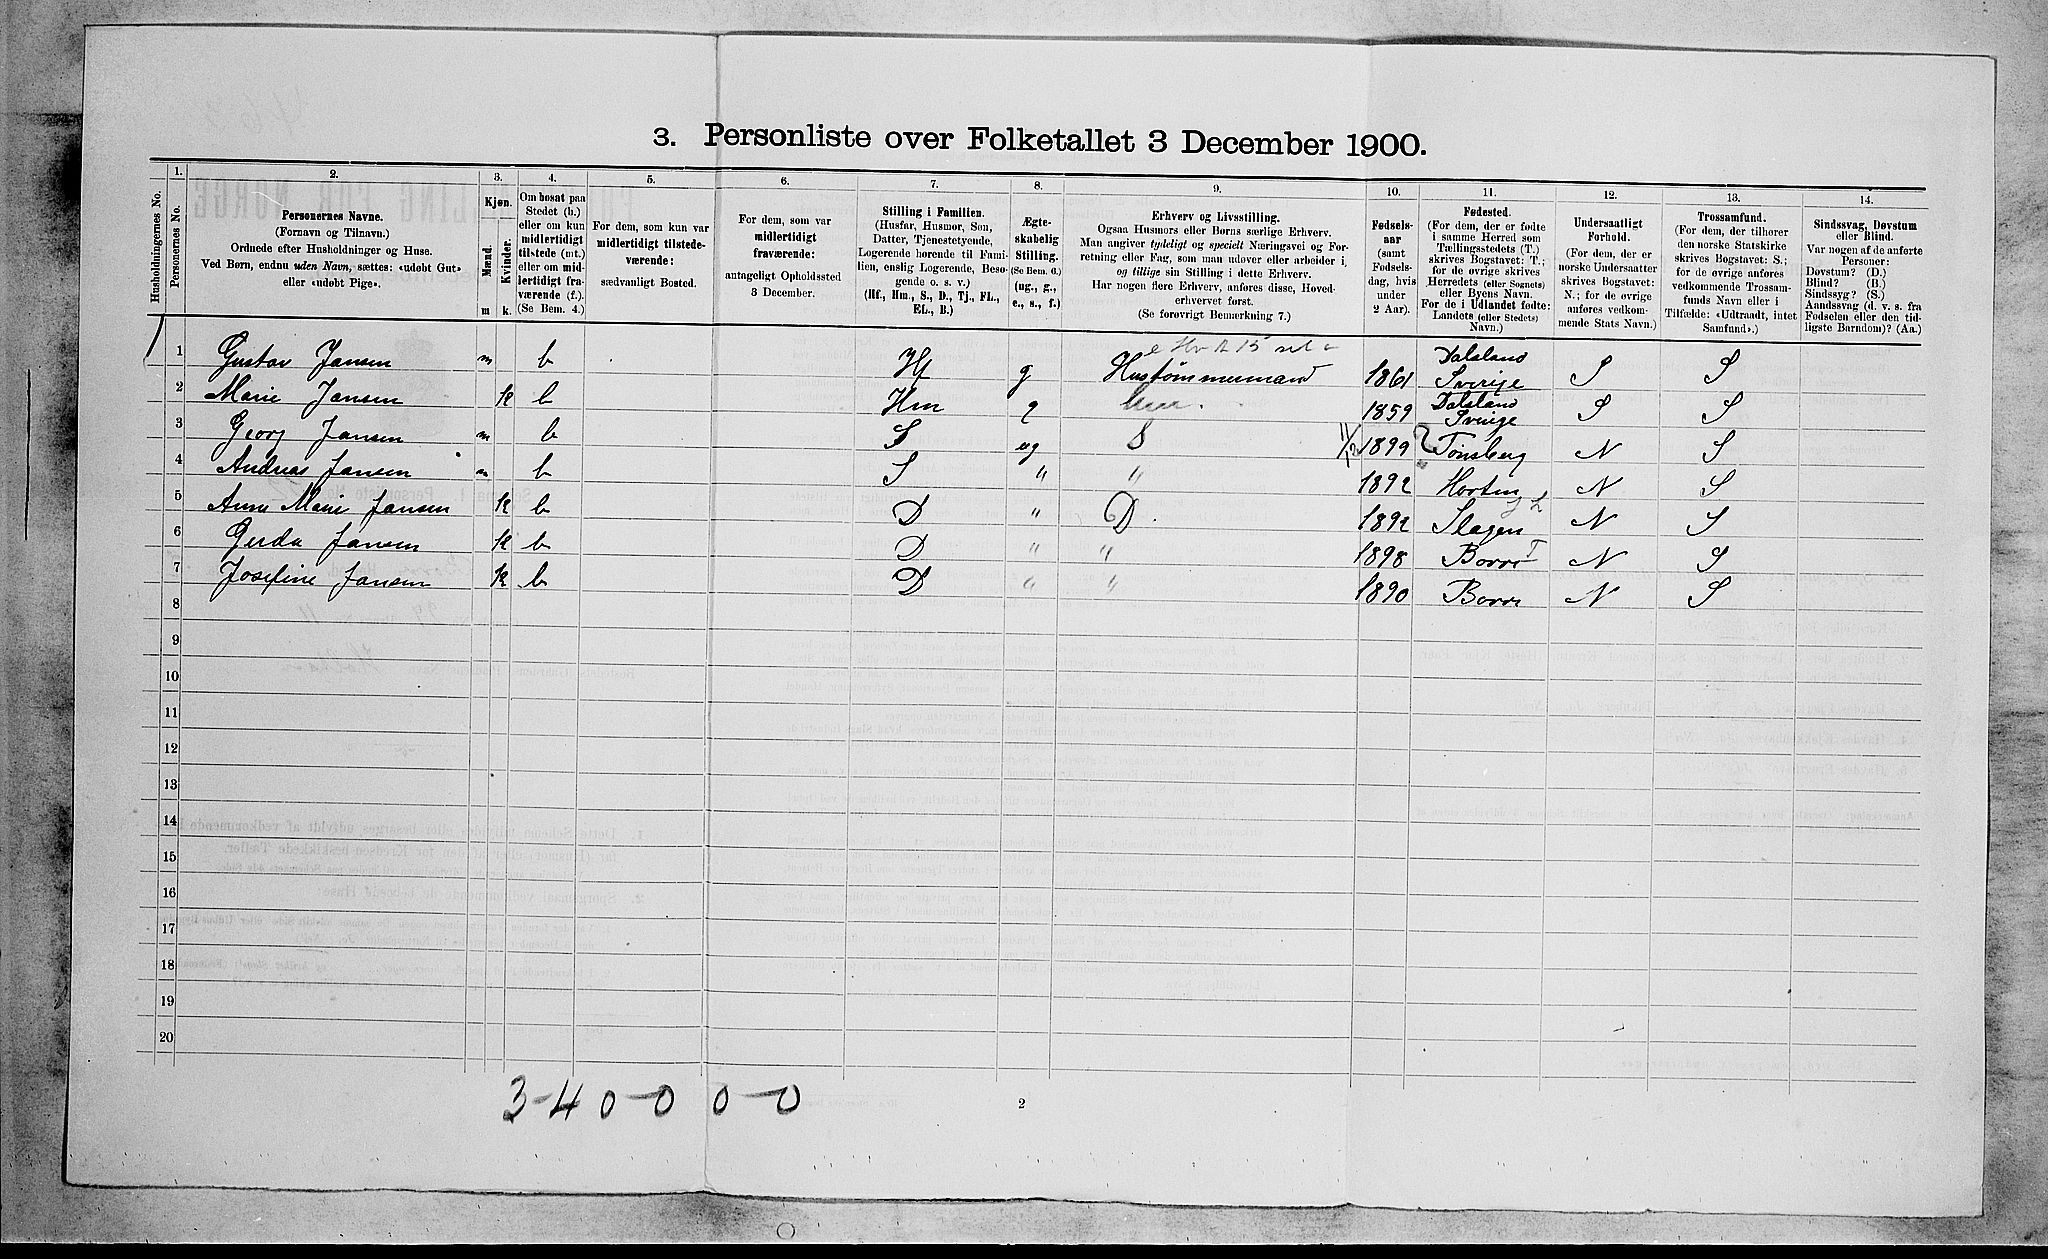 3. Personliste over Folketallet 3 December 1900.
Husholdningernes No.
1. Personernes No.
2. Personernes Navne.
(Fornavn og Tilnavn.)
Ordnede efter Husholdninger og Huse.
Ved Børn, endnu uden Navn, sættes: «udøbt Gut»
eller «udøbt Pige».
3. Kjøn.
Mænd. Kvinder.
m k.
4. Om bosat paa
Stedet (b.)
eller om kun
midlertidigt
tilstede (mt.)
eller om mid-
lertidigt fra-
værende (f.).
(Se Bem. 4.)
5. For dem, som kun var
midlertidigt tilstede-
værende:
sædvanligt Bosted.
6. For dem, som var
midlertidigt
fraværende:
antageligt Opholdssted
3 December.
7. Stilling i Familien.
(Husfar, Husmor, Søn,
Datter, Tjenestetyende,
Logerende hørende til Fami-
lien, enslig Logerende, Besø-
gende o. s. v.)
(Hf., Hm., S., D., Tj., FL.,
EL., B.)
8. Ægte-
skabelig
Stilling.
(Se Bem. 6.)
(ug., g.,
e., s., f.)
9. Erhverv og Livsstilling.
Ogsaa Husmors eller Børns særlige Erhverv.
Man angiver tydeligt og specielt Næringsvei og For-
retning eller Fag, som man udøver eller arbeider i,
og tillige sin Stilling i dette Erhverv.
Har nogen flere Erhverv, anføres disse, Hoved-
erhvervet først.
(Se forøvrigt Bemærkning 7.)
10. Fødsels-
aar
(samt
Fødsels-
dag, hvis
under
2 Aar).
11. Fødested.
(For dem, der er fødte
i samme Herred som
Tællingsstedets (T.)
skrives Bogstavet: T.;
for de øvrige skrives
Herredets (eller Sognets)
eller Byens Navn.
For de i Udlandet fødte:
Landets (eller Stedets)
Navn.)
12. Undersaatligt
Forhold.
(For dem, der er
norske Undersaatter
skrives Bogstavet:
N.; for de øvrige
anføres vedkom-
mende Stats Navn.)
13. Trossamfund.
(For dem, der tilhører
den norske Statskirke
skrives Bogstavet: S.;
for de øvrige anføres
vedkommende Trossam-
funds Navn eller i
Tilfælde: «Udtraadt, intet
Samfund».)
14. Sindssvag, Døvstum
eller Blind.
Var nogen af de anførte
Personer:
Døvstum? (D.)
Blind? (B.)
Sindssyg? (S.)
Aandssvag (d. v. s. fra
Fødselen eller den tid-
ligste Barndom)? (Aa.)
1 Gustav Jansen m b Hf g Hustømmermand 1861 Dalsland Sverige S S
2 Marie Jansen k b Hm g 1859 Dalsland Sverige S S
3 Georg Jansen m b S ug S 11/12 1899 Tønsberg N S
4 Andreas Jansen m b S " " 1892 Horten N S
5 Anne Marie Jansen k b D " D 1892 Slagen N S
6 Gerda Jansen k b D " " 1898 Borre T N S
7 Josefine Jansen k b D " " 1890 Borre N S
8
9
10
11
12
13
14
15
16
17
18
19
20
3-4 0-0 0-0
2